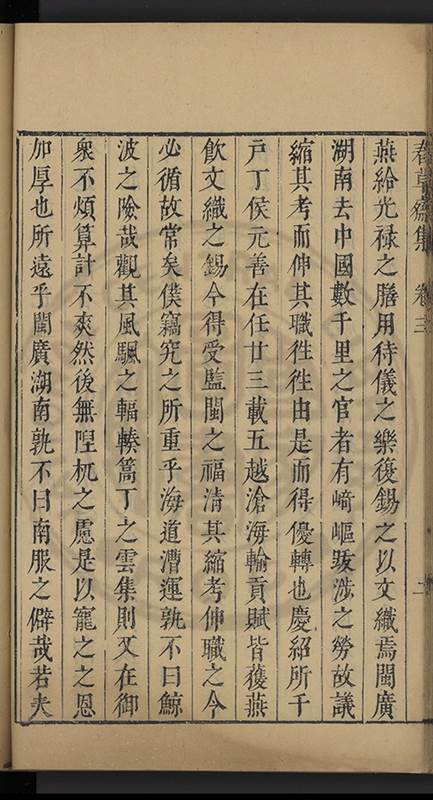 春草齋集 卷三 二
燕給光祿之膳用待儀之樂復錫之以文織焉閩廣
湖南去中國數千里之官者有﨑嶇跋涉之勞故議
縮其考而伸其職徃徃由是而得優轉也慶紹所千
戶丁侯元善在任廿三載五越滄海輸貢賦皆獲燕
飲文織之錫今得受監閩之福清其縮考伸職之令
必循故常矣僕竊究之所重乎海道漕運孰不曰鯨
波之險哉觀其風颿之輻輳篙丁之雲集則又在御
衆不煩算計不爽然後無隉杌之慮是以寵之之恩
加厚也所遠乎閩廣湖南孰不曰南服之僻哉若夫